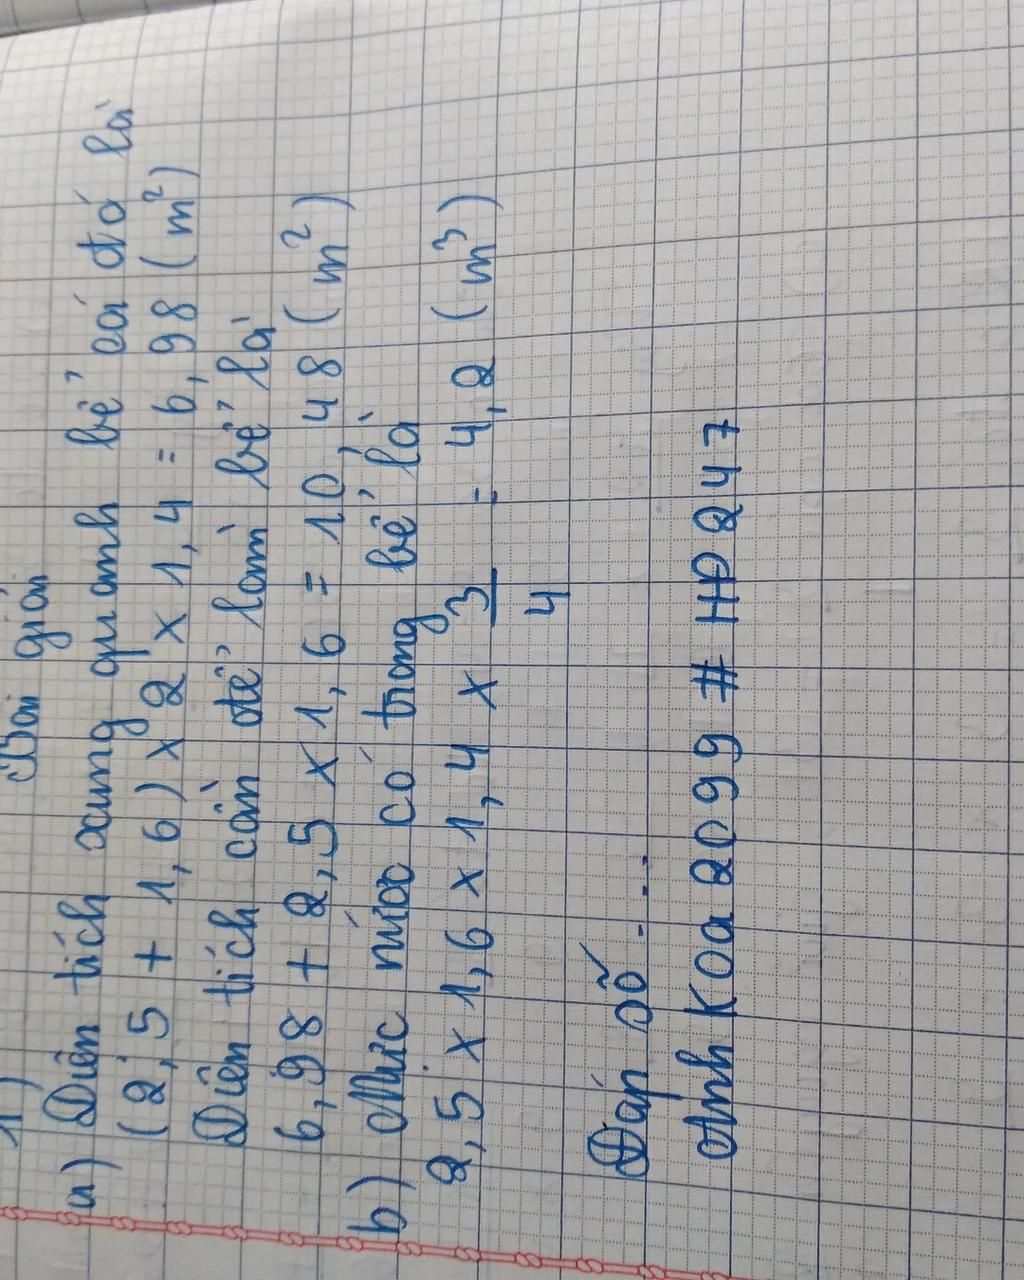 1)
Bài giải
a) Diện tích xung quanh bể cá đó là
(2,5 + 1,6) x 2 x 1,4 = 6,98 (m²)
Diện tích cần để làm bể là
6,98 + 2,5 x 1,6 = 10,48 (m²)
b) Mức nước có trong bể là
2,5 x 1,6 x 1,4 x 3/4 = 4,2 (m³)
Đáp số ....
Anh Koa 2099 # HP 247